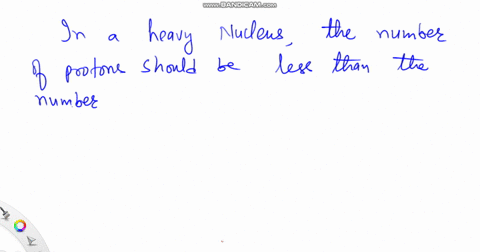 WWW.BANDICAM.COM
In a heavy Nucleus, the number
of protons should be less than the
number